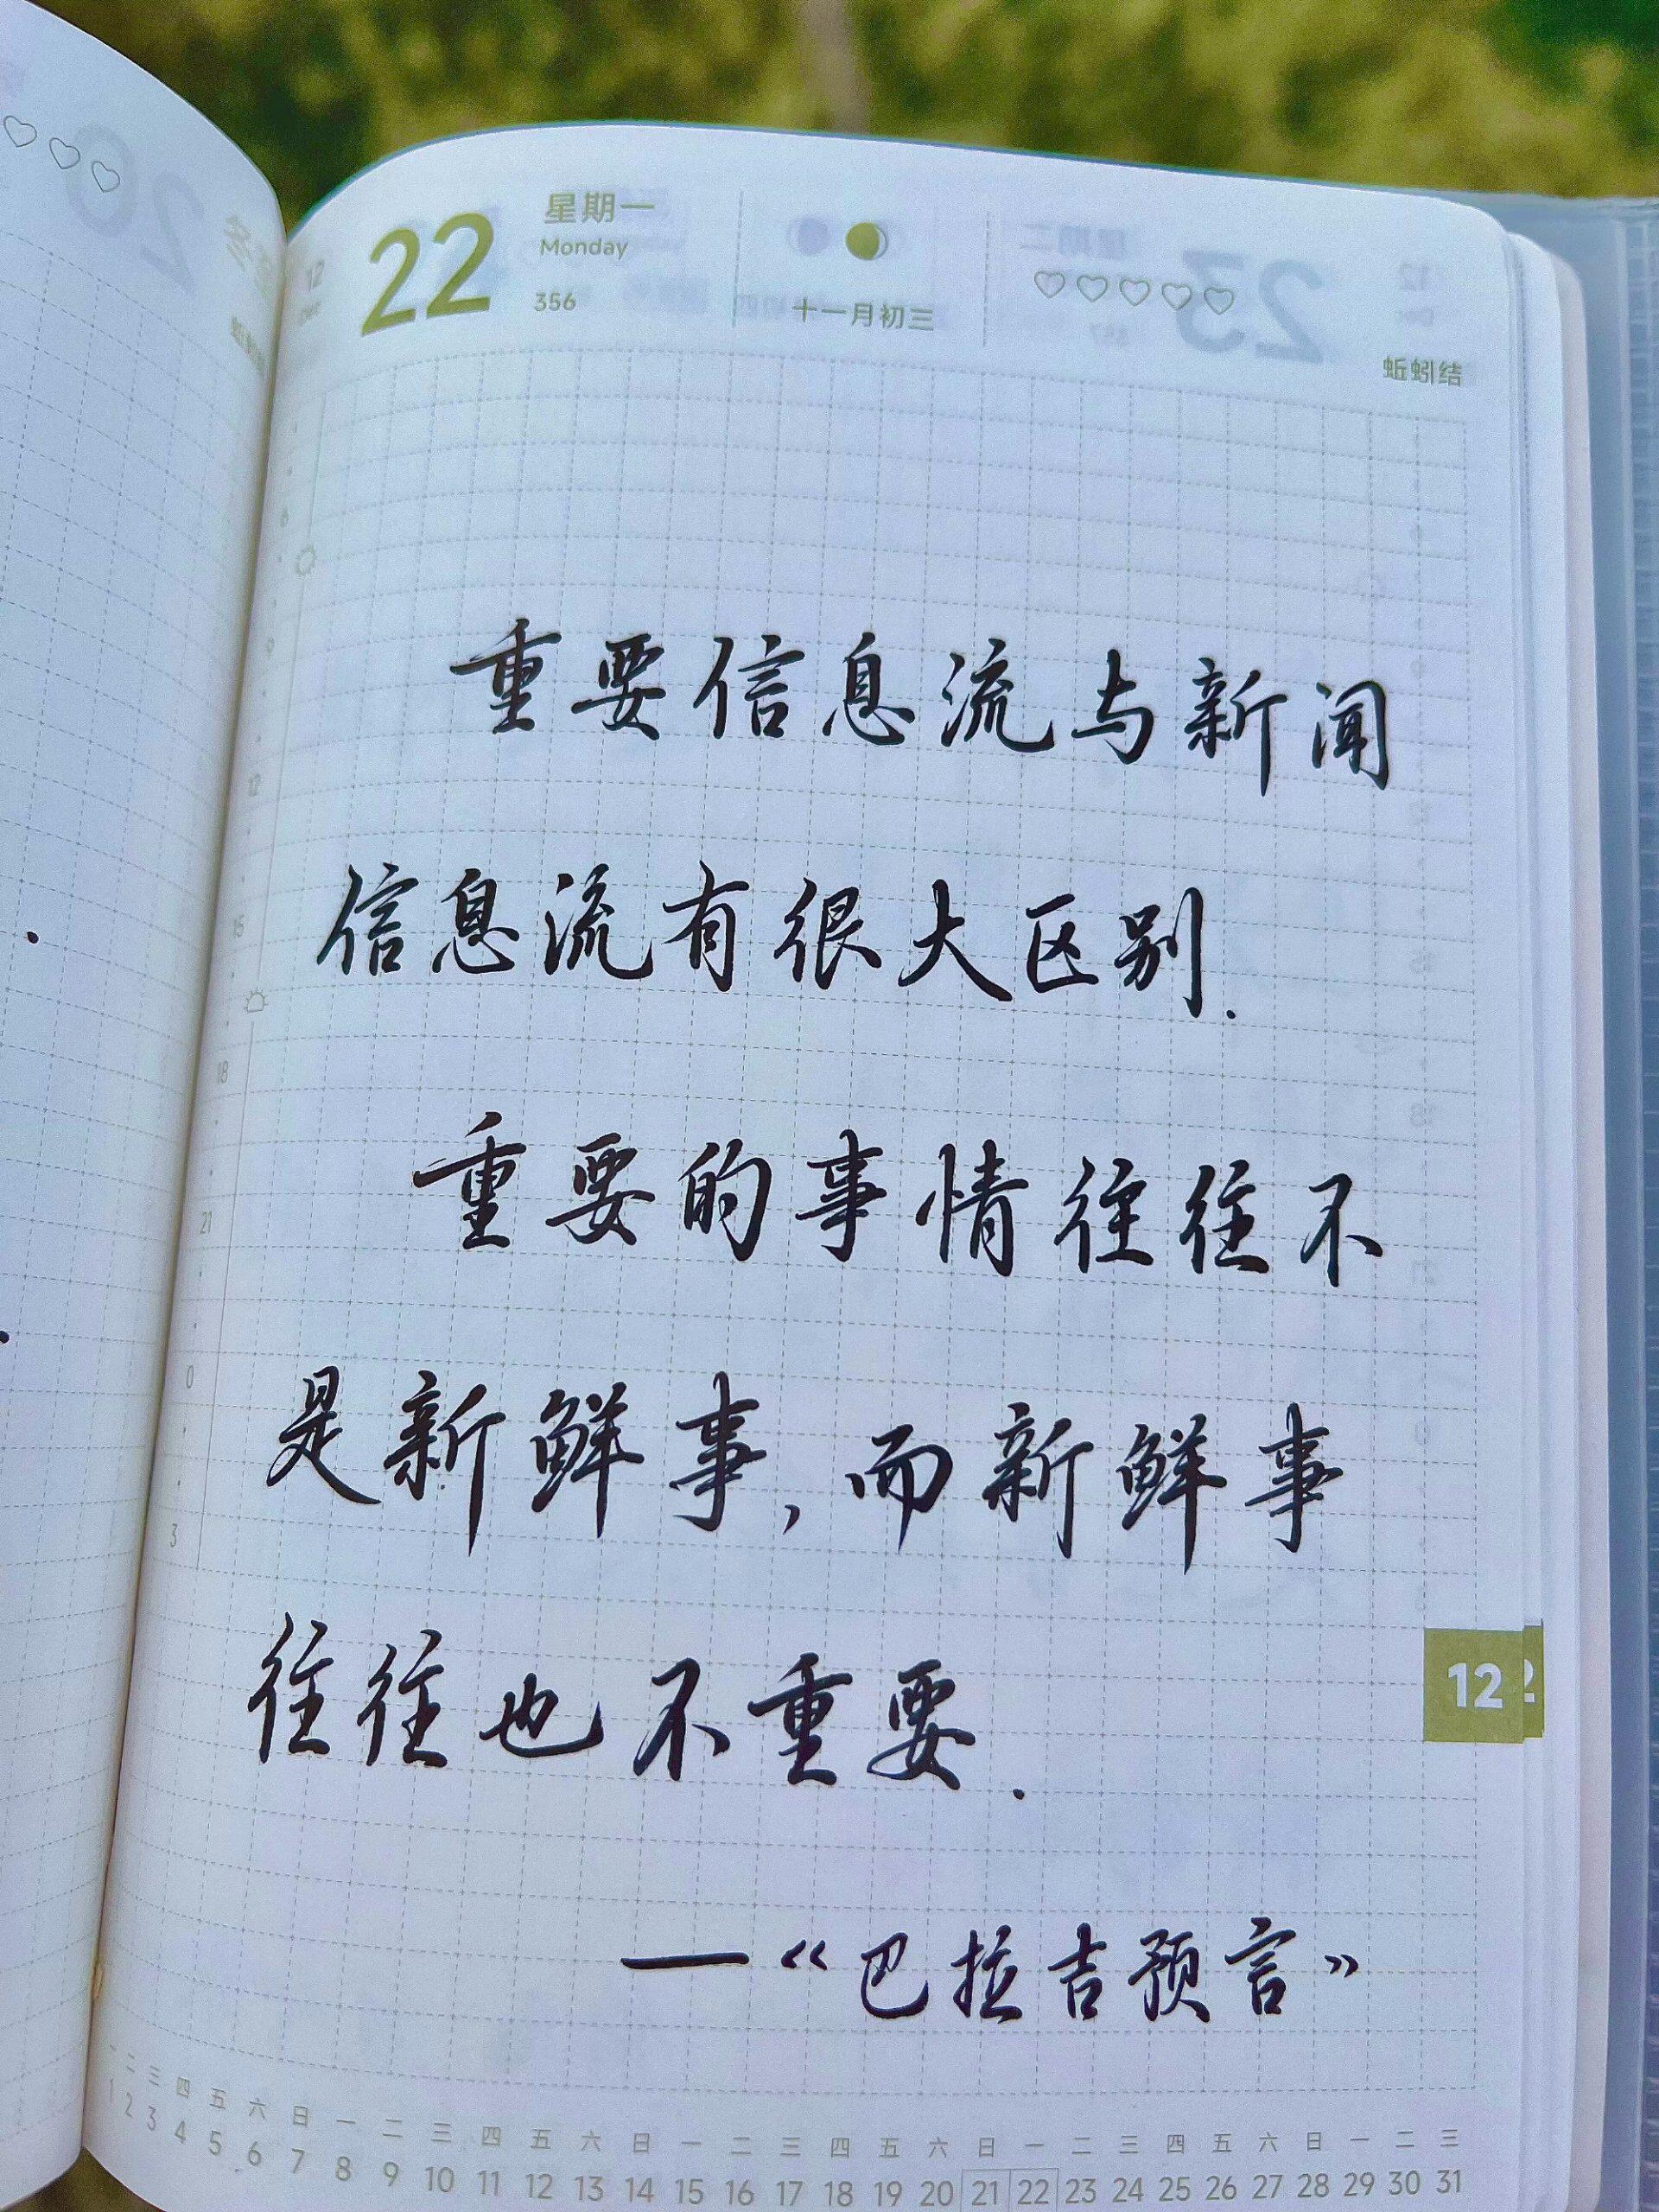 22
星期一
Monday
356
十一月初三
蚯蚓结
重要信息流与新闻
信息流有很大区别.
重要的事情往往不
是新鲜事,而新鲜事
往往也不重要.
—《巴拉吉预言》
12
6
9
12
15
18
21
0
3
一 二 三 四 五 六 日 一 二 三 四 五 六 日 一 二 三 四 五 六 日 一 二 三 四 五 六 日 一 二 三
1 2 3 4 5 6 7 8 9 10 11 12 13 14 15 16 17 18 19 20 21 22 23 24 25 26 27 28 29 30 31